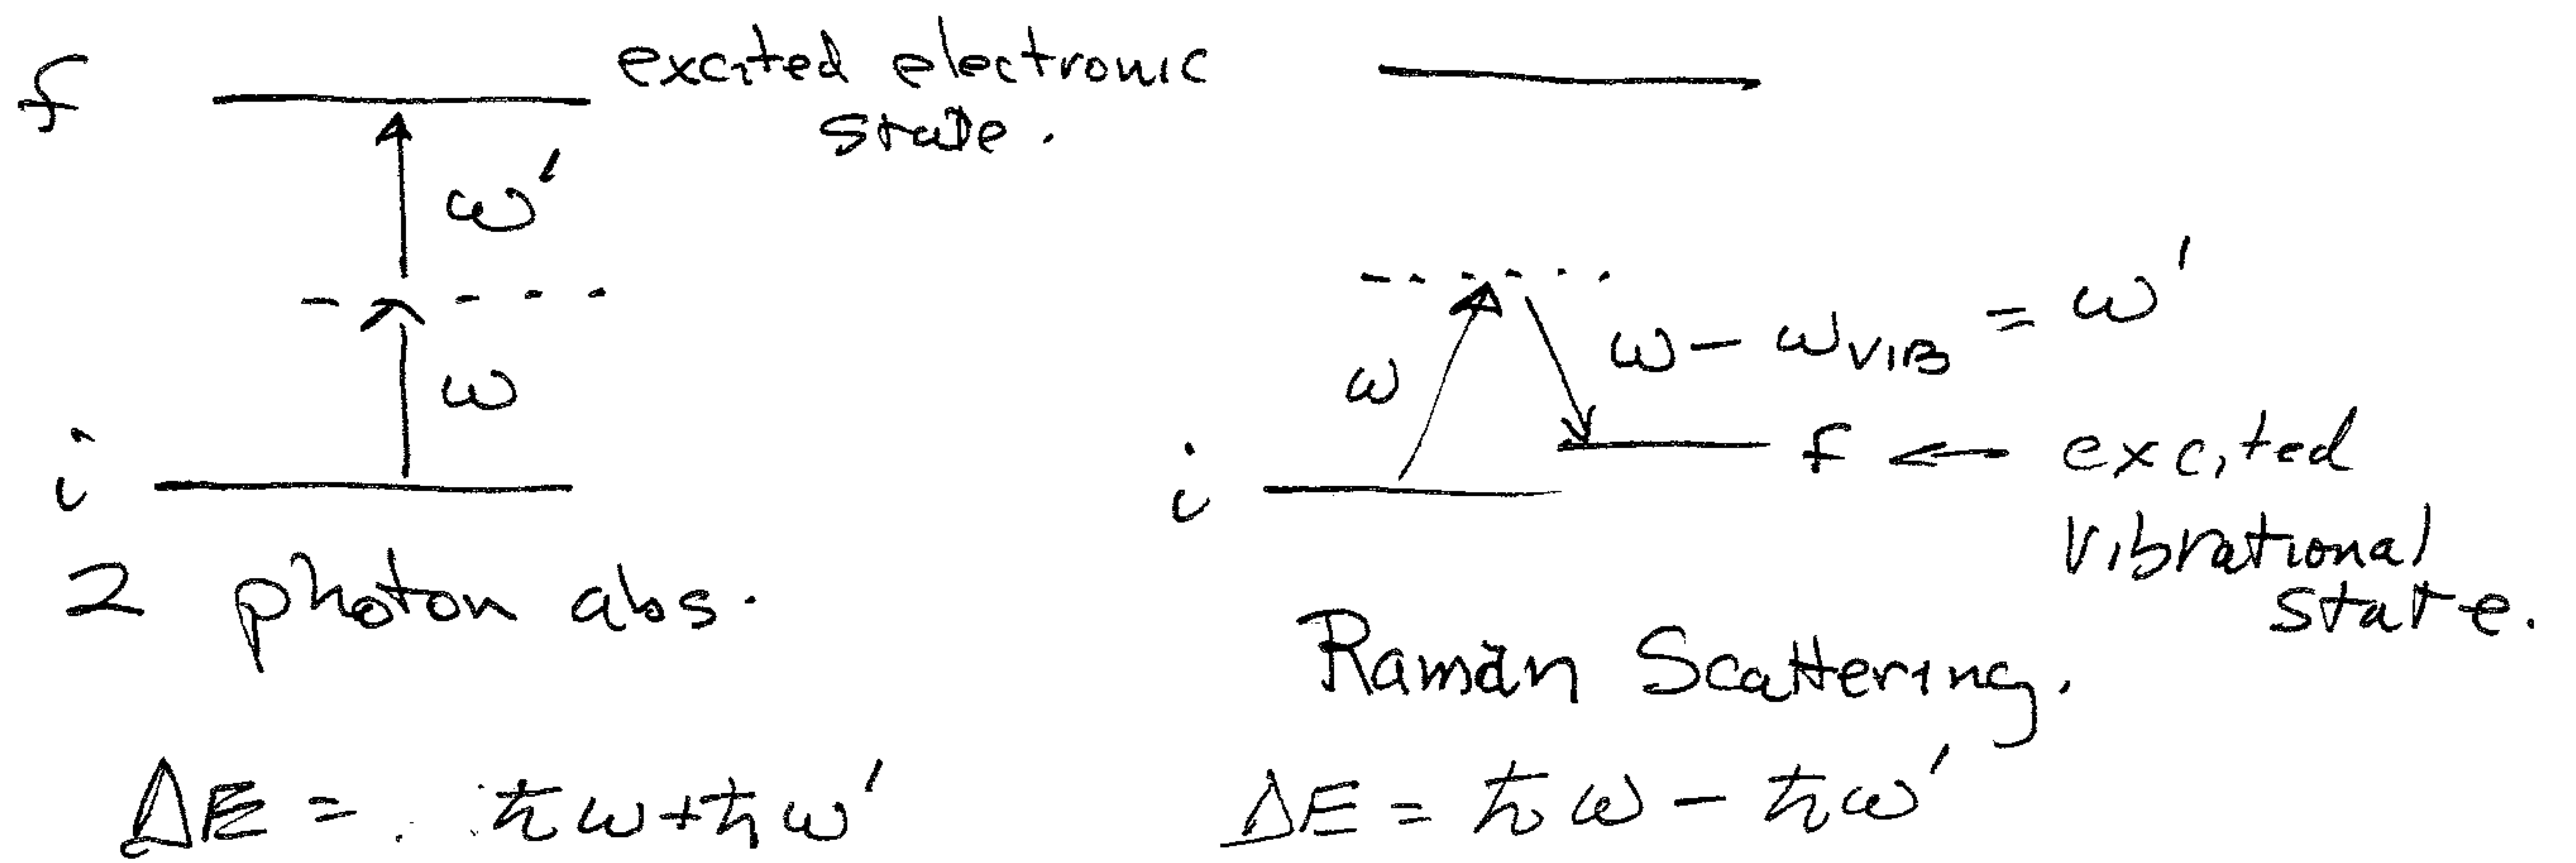 f
excited electronic
state.
ω'
ω
i
2 photon abs.
ΔE = ħω+ħω'
ω
ω - ω_VIB = ω'
i
f ← excited
vibrational
state.
Raman Scattering.
ΔE = ħω - ħω'